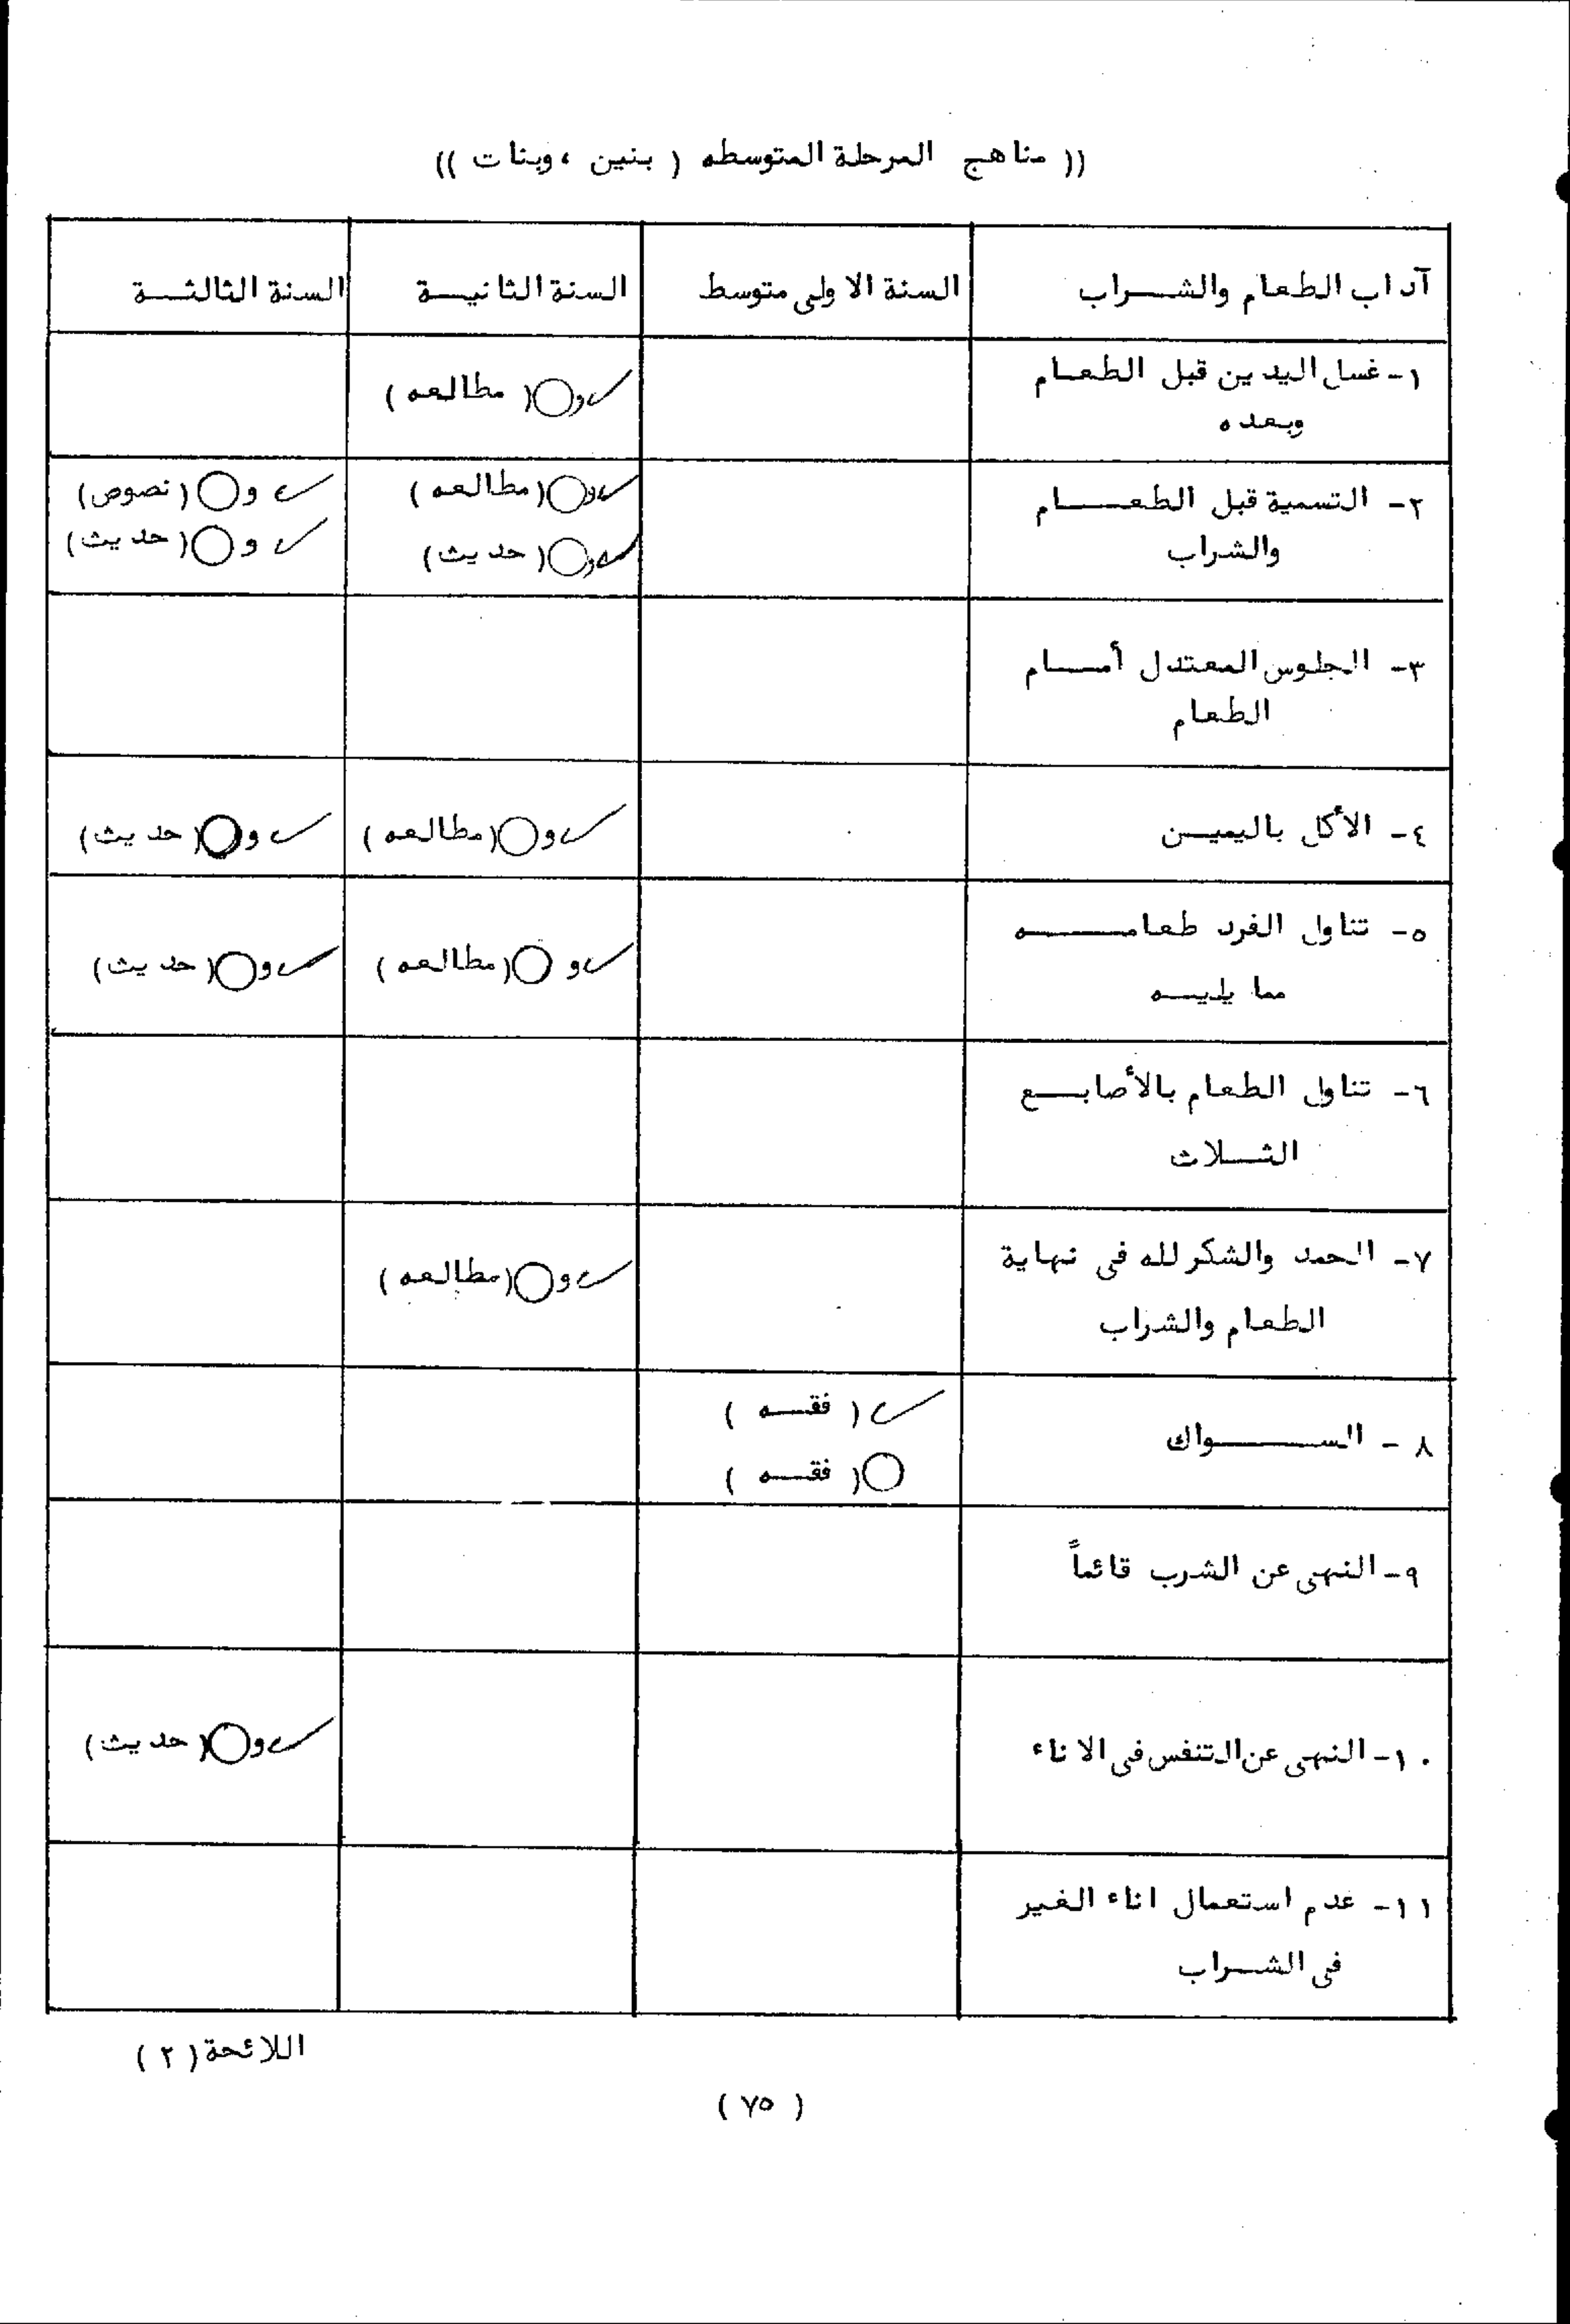 (( مناهج المرحلة المتوسطه ( بنين ، وبنات ))
آداب الطعام والشراب السنة الاولى متوسط السنة الثانية السنة الثالثة
١- غسل اليدين قبل الطعام
وبعده
✓و○( مطالعه )
٢- التسمية قبل الطعام
والشراب
✓و○(مطالعه )
✓و○( حديث)
✓ و○( نصوص)
✓ و○( حديث)
٣- الجلوس المعتدل أمام
الطعام
٤- الأكل باليمين ✓و○(مطالعه ) ✓ و○( حديث)
٥- تناول الفرد طعامه
مما يليه
✓و ○(مطالعه ) ✓و○( حديث)
٦- تناول الطعام بالأصابع
الثلاث
٧- الحمد والشكر لله فى نهاية
الطعام والشراب
✓و○(مطالعه )
٨ - السواك
✓( فقه )
○( فقه )
٩- النهى عن الشرب قائماً
١٠- النهى عن التنفس فى الاناء ✓و○( حديث)
١١- عدم استعمال اناء الغير
فى الشراب
اللائحة ( ٢ )
( ٧٥ )